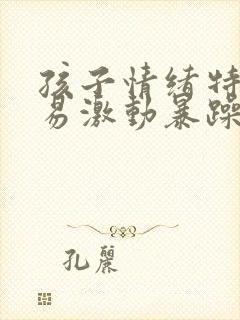 孩子情绪特
易激動暴躁
孔麗